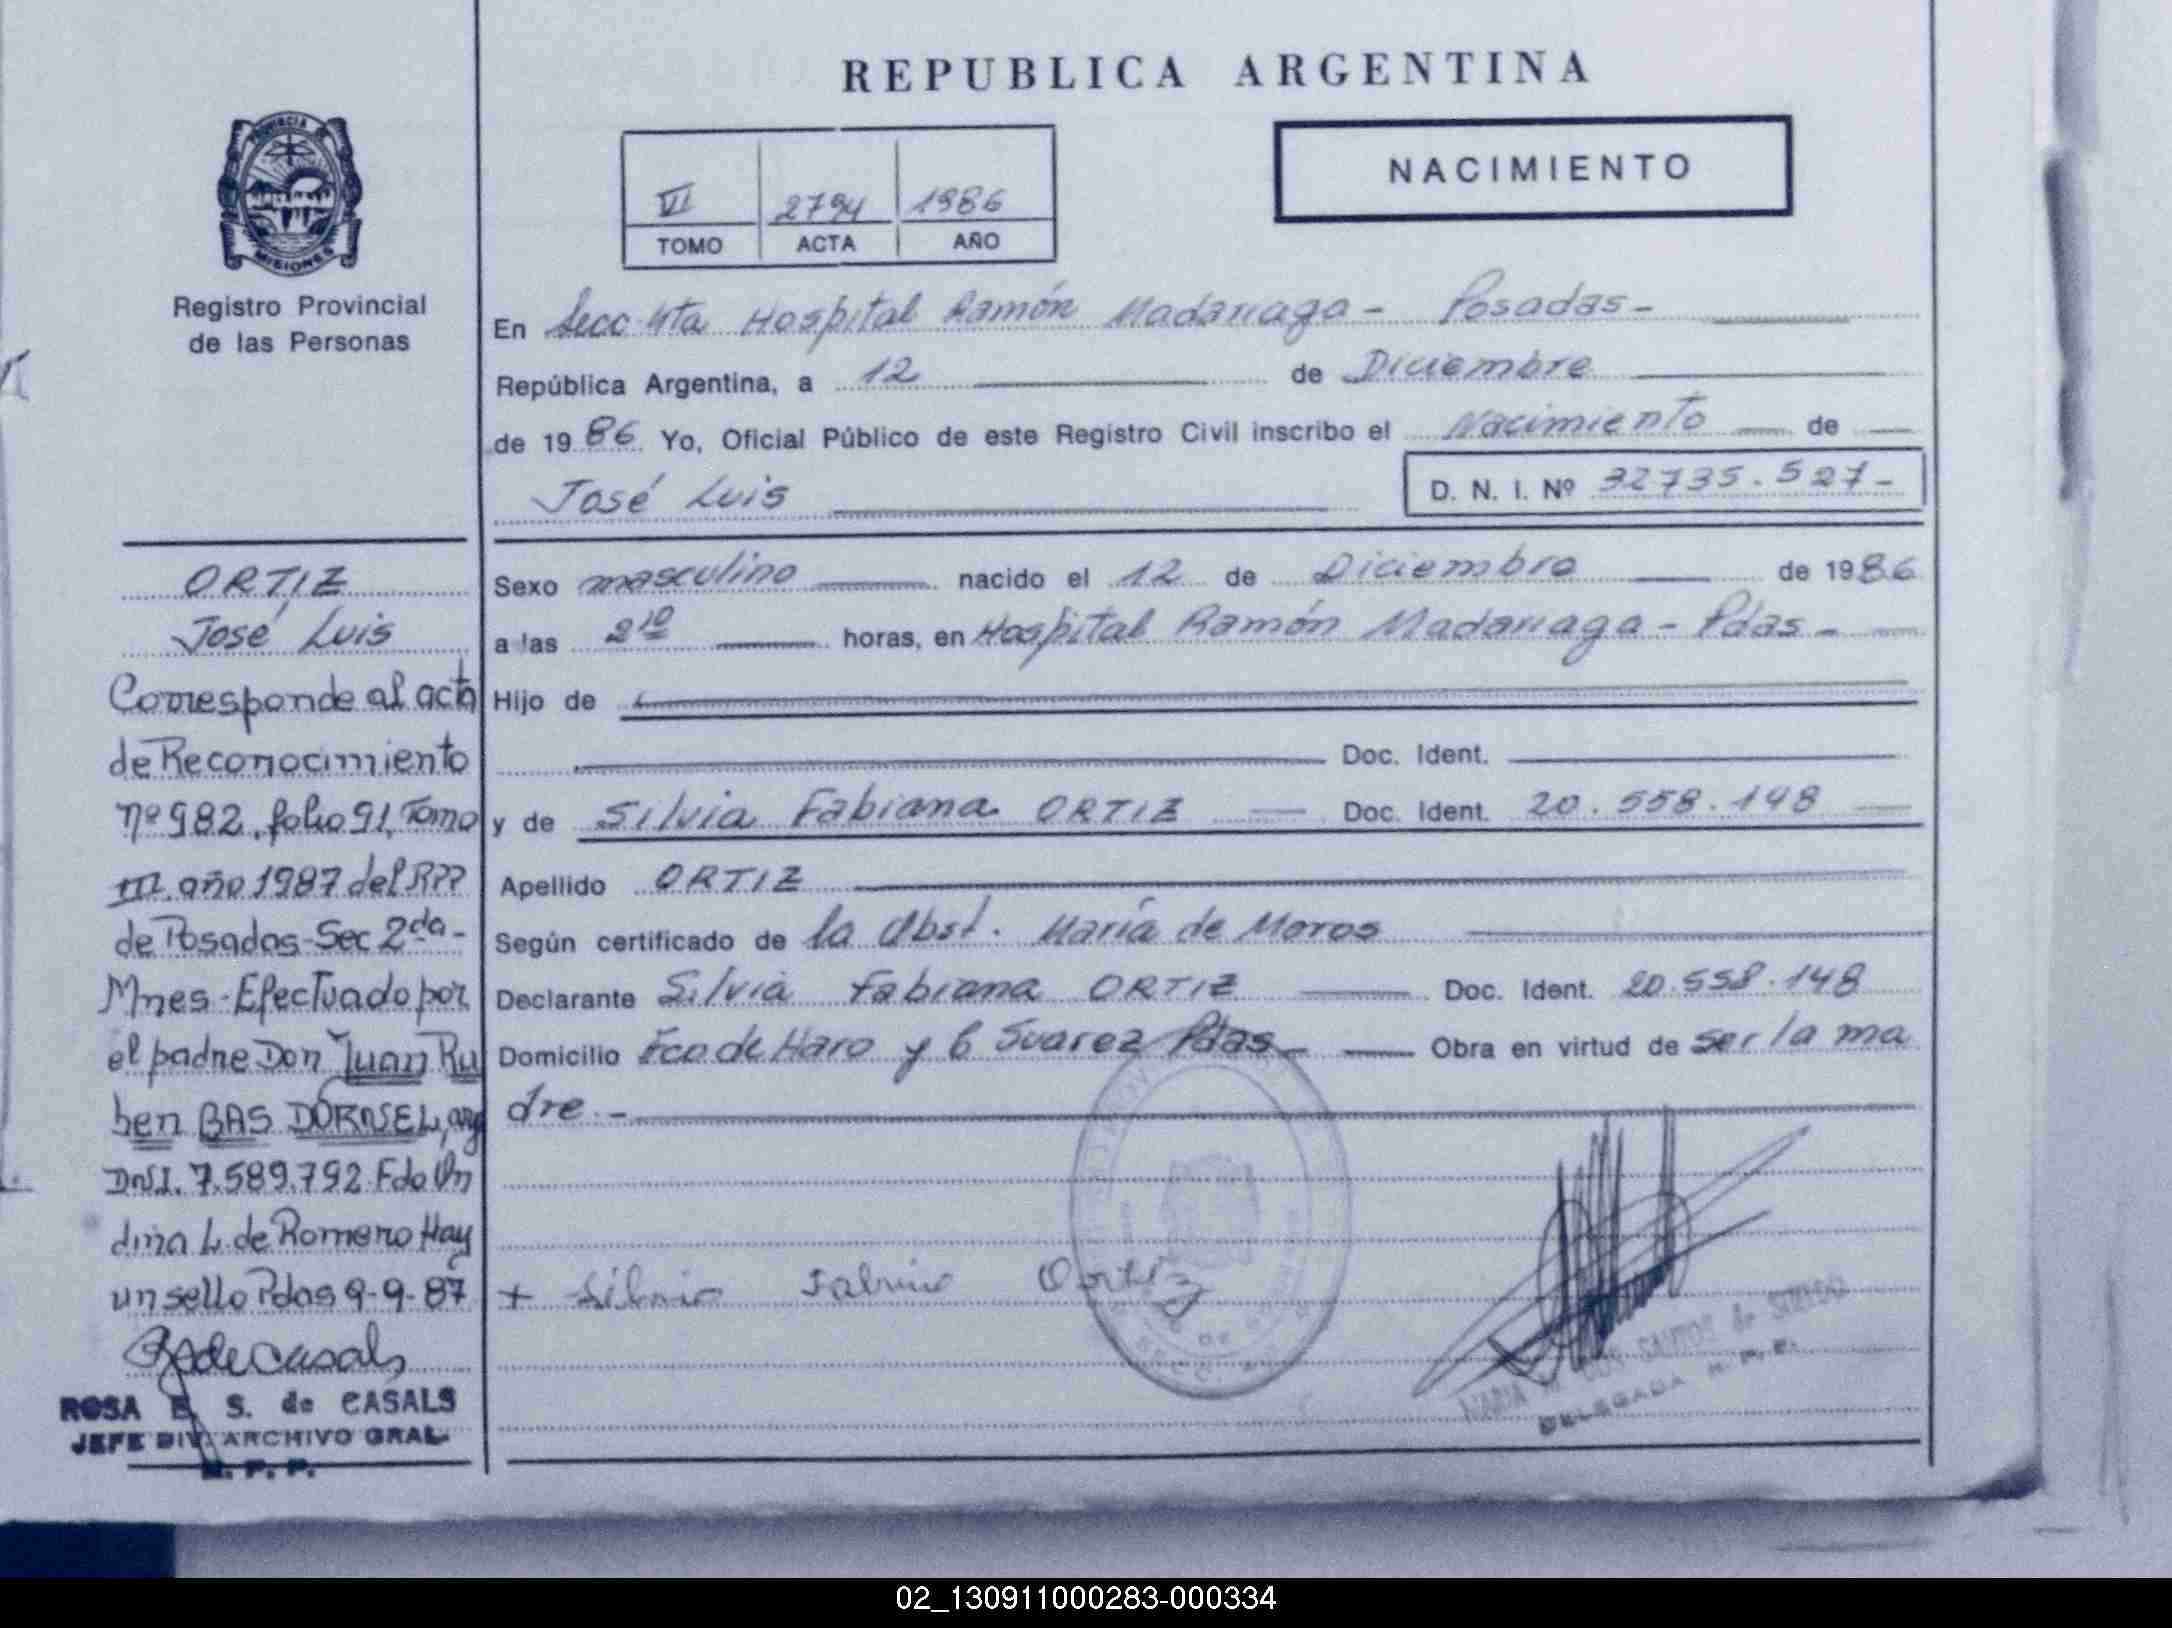 REPUBLICA ARGENTINA
PROVINCIA DE
MISIONES
Registro Provincial
de las Personas
VI 2794 1986
TOMO ACTA AÑO
NACIMIENTO
En Secc 4ta Hospital Ramón Madariaga - Posadas -
República Argentina, a 12 de Diciembre
de 1986 Yo, Oficial Público de este Registro Civil inscribo el Nacimiento de
José Luis
D. N. I. Nº 32735.527-
ORTIZ
José Luis
Corresponde al acta
de Reconocimiento
nº 982, folio 91, Tomo
III año 1987 del RPP
de Posadas-Sec 2da-
Mnes-Efectuado por
el padre Don Juan Ru
ben BAS DORNSEL, arg
DNI. 7.589.792 Fdo On
dina L. de Romero Hay
un sello Pdas 9-9-87
RdeCasals
ROSA E. S. de CASALS
JEFE DIV. ARCHIVO GRAL.
R. P. P.
Sexo masculino nacido el 12 de Diciembre de 1986
a las 2 10 horas, en Hospital Ramón Madariaga - Pdas -
Hijo de
Doc. Ident.
y de Silvia Fabiana ORTIZ Doc. Ident. 20.558.148
Apellido ORTIZ
Según certificado de la Obst. María de Moros
Declarante Silvia Fabiana ORTIZ Doc. Ident. 20.558.148
Domicilio Fco de Haro y B Suarez Pdas - Obra en virtud de ser la ma
dre.-
+ Silvia Fabiana Ortiz
MARIA SANTOS de
DELEGADA R. P. P.
02_130911000283-000334